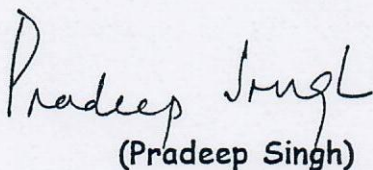 Pradeep Singh
(Pradeep Singh)